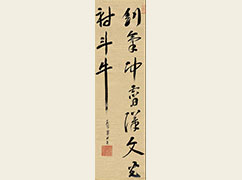 劍氣冲霄漢文光
射斗牛